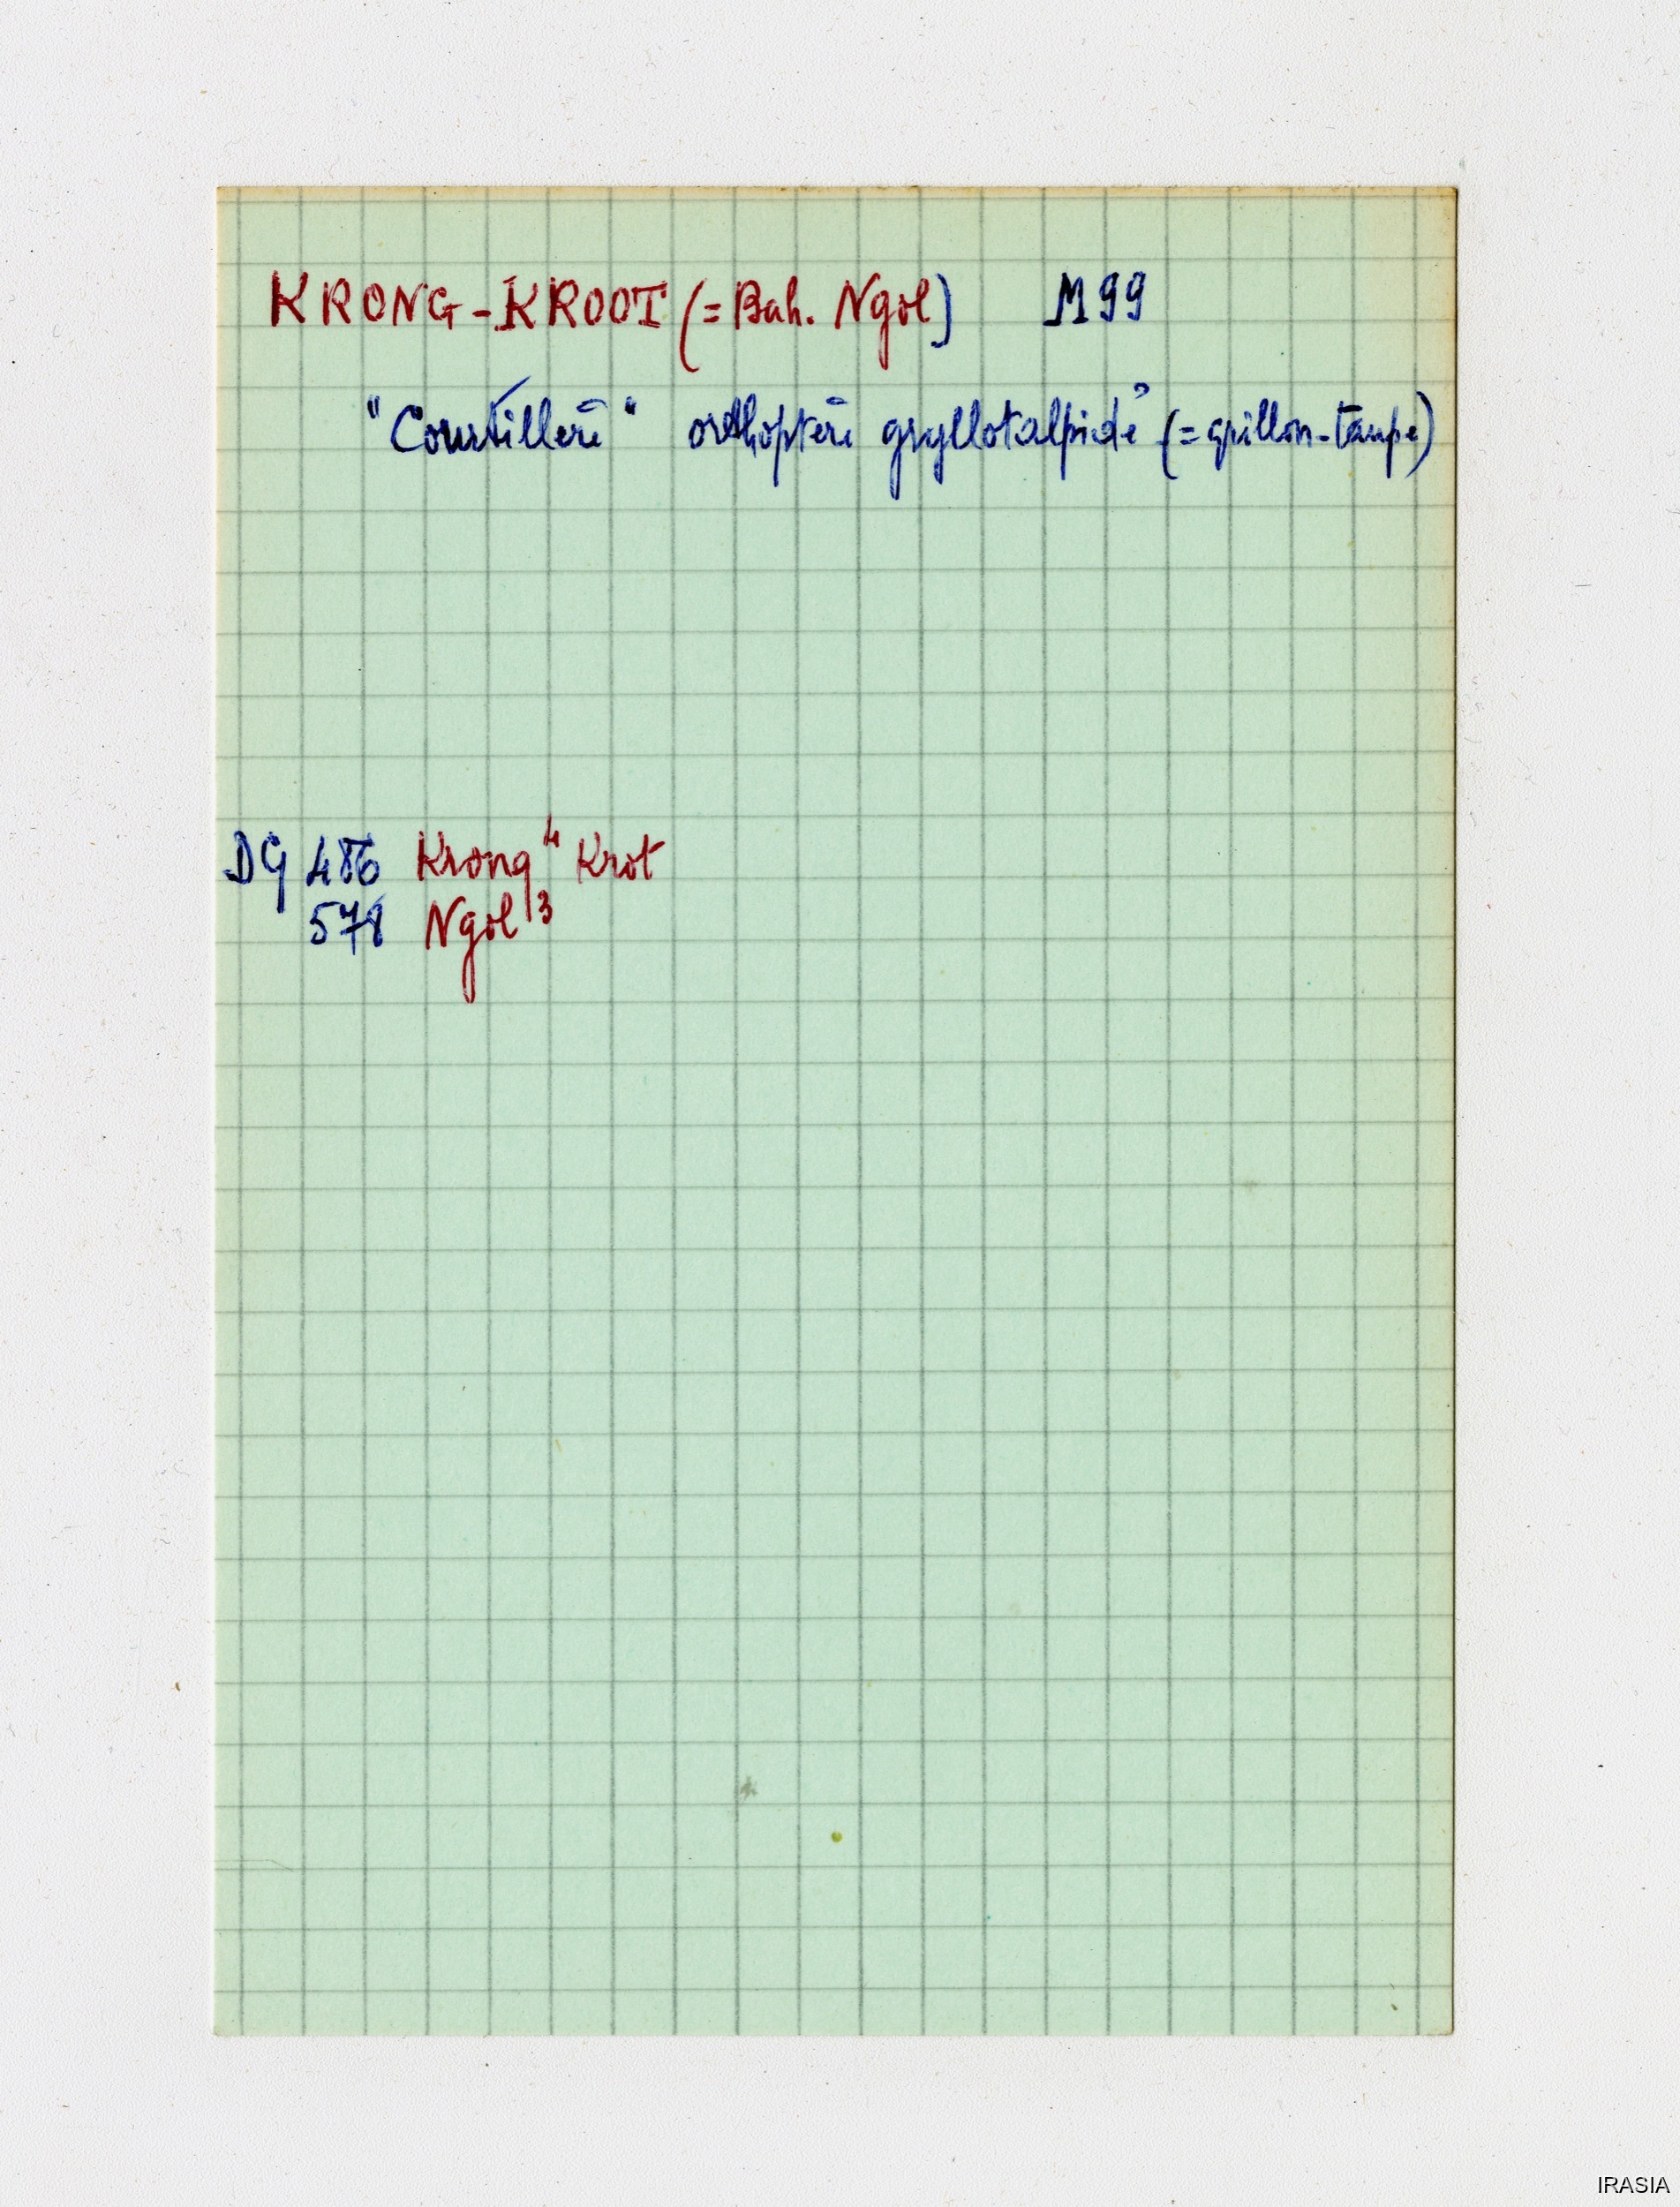 KRONG-KROOT (= Bah. Ngol) M 99
"Courtillère" orthoptère gryllotalpidé (= grillon-taupe)
DG 486 Krong⁴ Krot
578 Ngol³
IRASIA